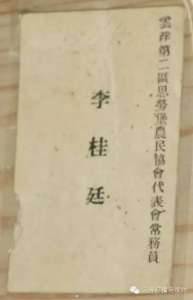 雲浮第二區思勞堡農民協會代表會常務員
李桂廷